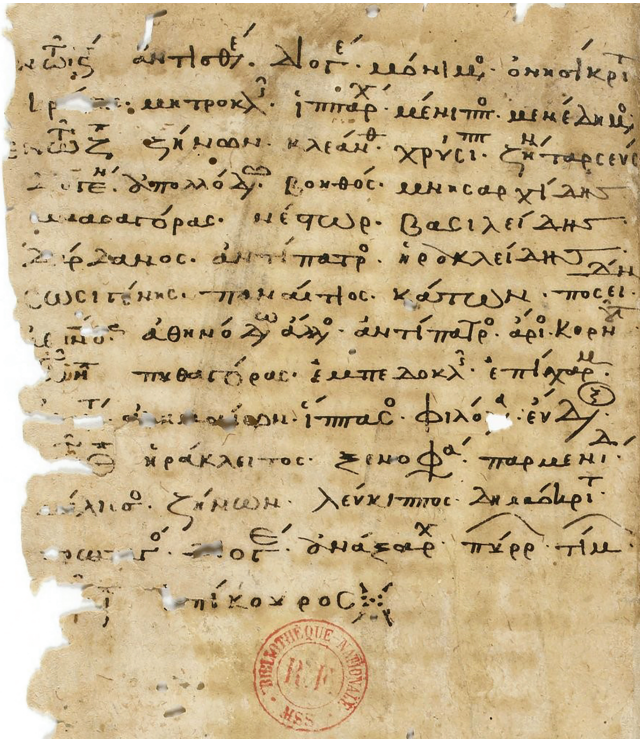 τῷ ϛ ἀντισθέ· Διογέ· μόνιμο· ὀνησίκριτ
κράτης· μητροκλ· ἵππαρχ· μένιππ· μενέδημο
ἐν τῷ ζ ζήνων· κλεάνθ· χρύσιππ· ζήν ταρσεύς
Διογέν· ἀπολλόδω· βοηθός· μνησαρχίδης
μνασαγόρας· νέστωρ· βασιλείδης
Δάρδανος· ἀντίπατρο· ἡρακλείδης
σωσιγένης· παναίτιος· κάτων· ποσειδών
ἀθηνόδω ἄλλο· ἀντίπατρο· ἄρι· κορν
πυθαγόρας· ἐμπεδοκλ· ἐπίχαρμ
ἀλκμαίων· ἵππασο· φιλόλα· εὔδοξ
ἡράκλειτος· ξενοφά· παρμενίδ
μέλισσο· ζήνων· λεύκιππος· δημόκριτ
πρωταγό· Διογέ· ἀνάξαρχ· πύρρ· τίμ
ἐπίκουρος
BIBLIOTHÈQUE NATIONALE
R.F.
MSS